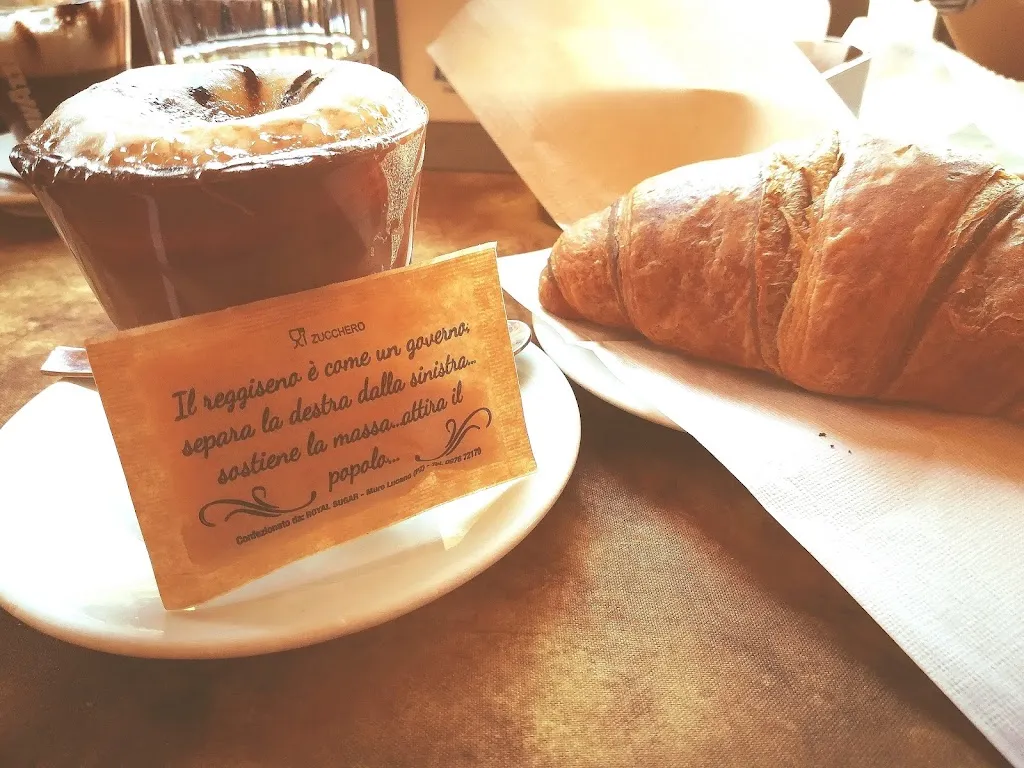 ZUCCHERO
Il reggiseno è come un governo,
separa la destra dalla sinistra...
sostiene la massa...attira il
popolo...
Confezionato da: ROYAL SUGAR - Muro Lucano (PZ) - Tel. 0976 72179